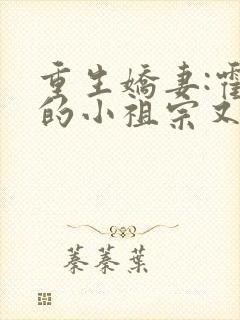 重生嬌妻:霍
的小祖宗又
蓁蓁葉